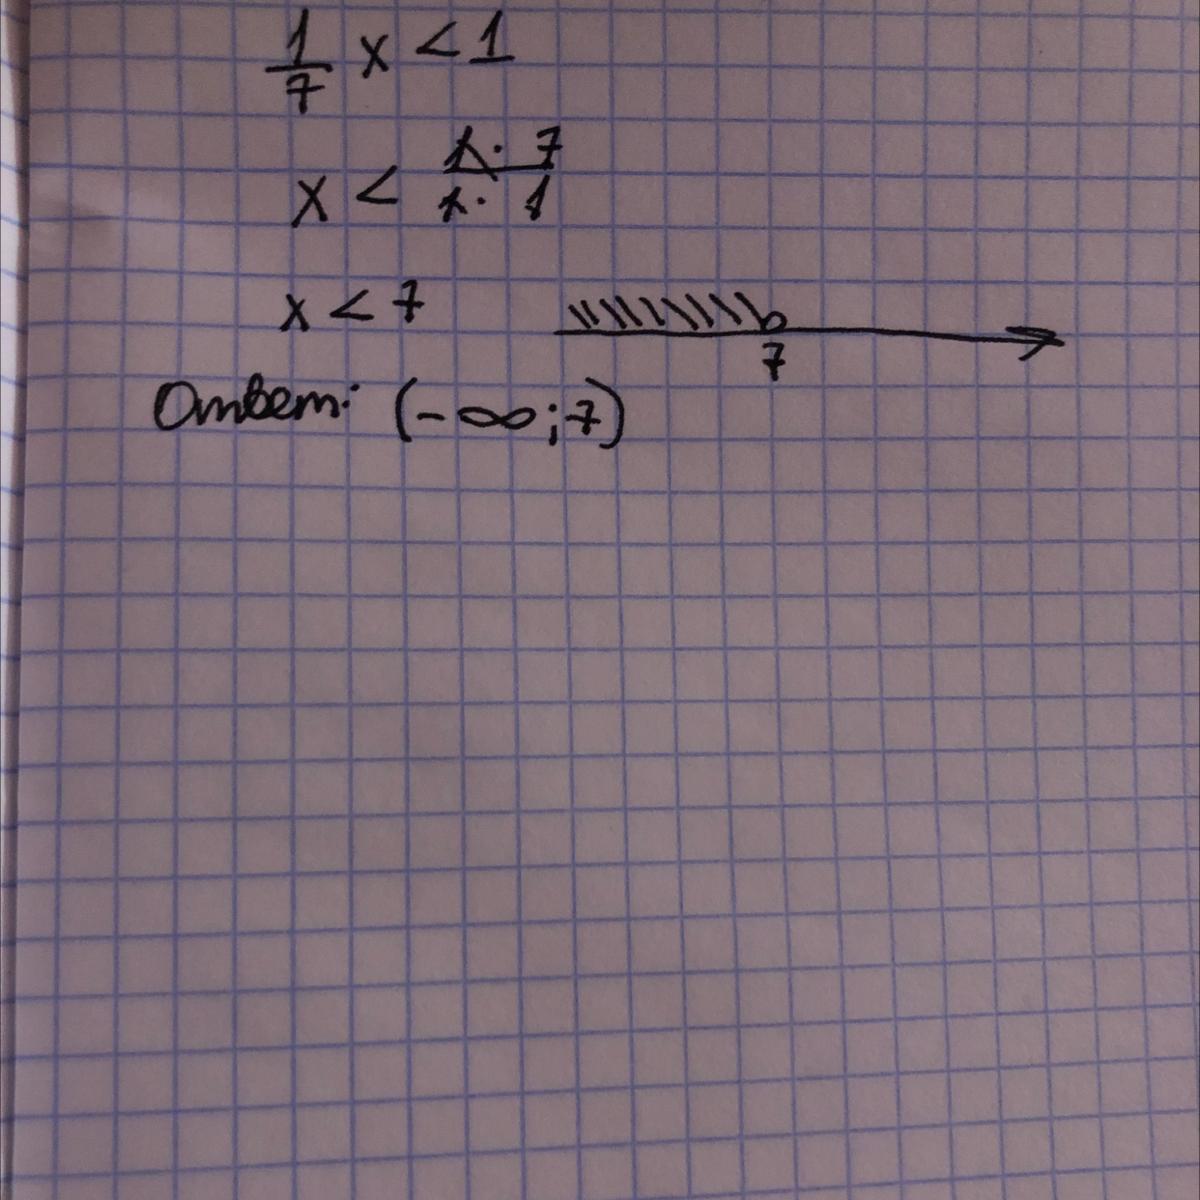 1/7 x < 1
x < (1 · 7)/(1 · 1)
x < 7
7
Ответ: (-∞; 7)